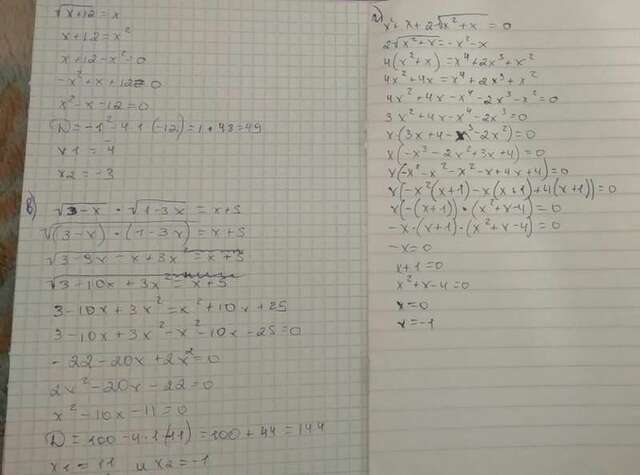 √x+12 = x
x+12 = x²
x+12-x²=0
-x²+x+12=0
x²-x-12=0
D = -1²-4·1·(-12)=1+48=49
x1 = 4
x2 = -3
в) √3-x · √1-3x = x+5
√(3-x)·(1-3x) = x+5
√3-9x-x+3x² = x+5
√3-10x+3x² = x+5
3-10x+3x² = x²+10x+25
3-10x+3x²-x²-10x-25=0
-22-20x+2x²=0
2x²-20x-22=0
x²-10x-11=0
D=100-4·1·(-11)=100+44=144
x1=11 и x2=-1
г) x²+x+2√x²+x = 0
2√x²+x = -x²-x
4(x²+x)=x⁴+2x³+x²
4x²+4x=x⁴+2x³+x²
4x²+4x-x⁴-2x³-x²=0
3x²+4x-x⁴-2x³=0
x·(3x+4-x³-2x²)=0
x(-x³-2x²+3x+4)=0
x(-x³-x²-x²-x+4x+4)=0
x(-x²(x+1)-x(x+1)+4(x+1))=0
x(-(x+1))·(x²+x-4)=0
-x·(x+1)·(x²+x-4)=0
-x=0
x+1=0
x²+x-4=0
x=0
x=-1